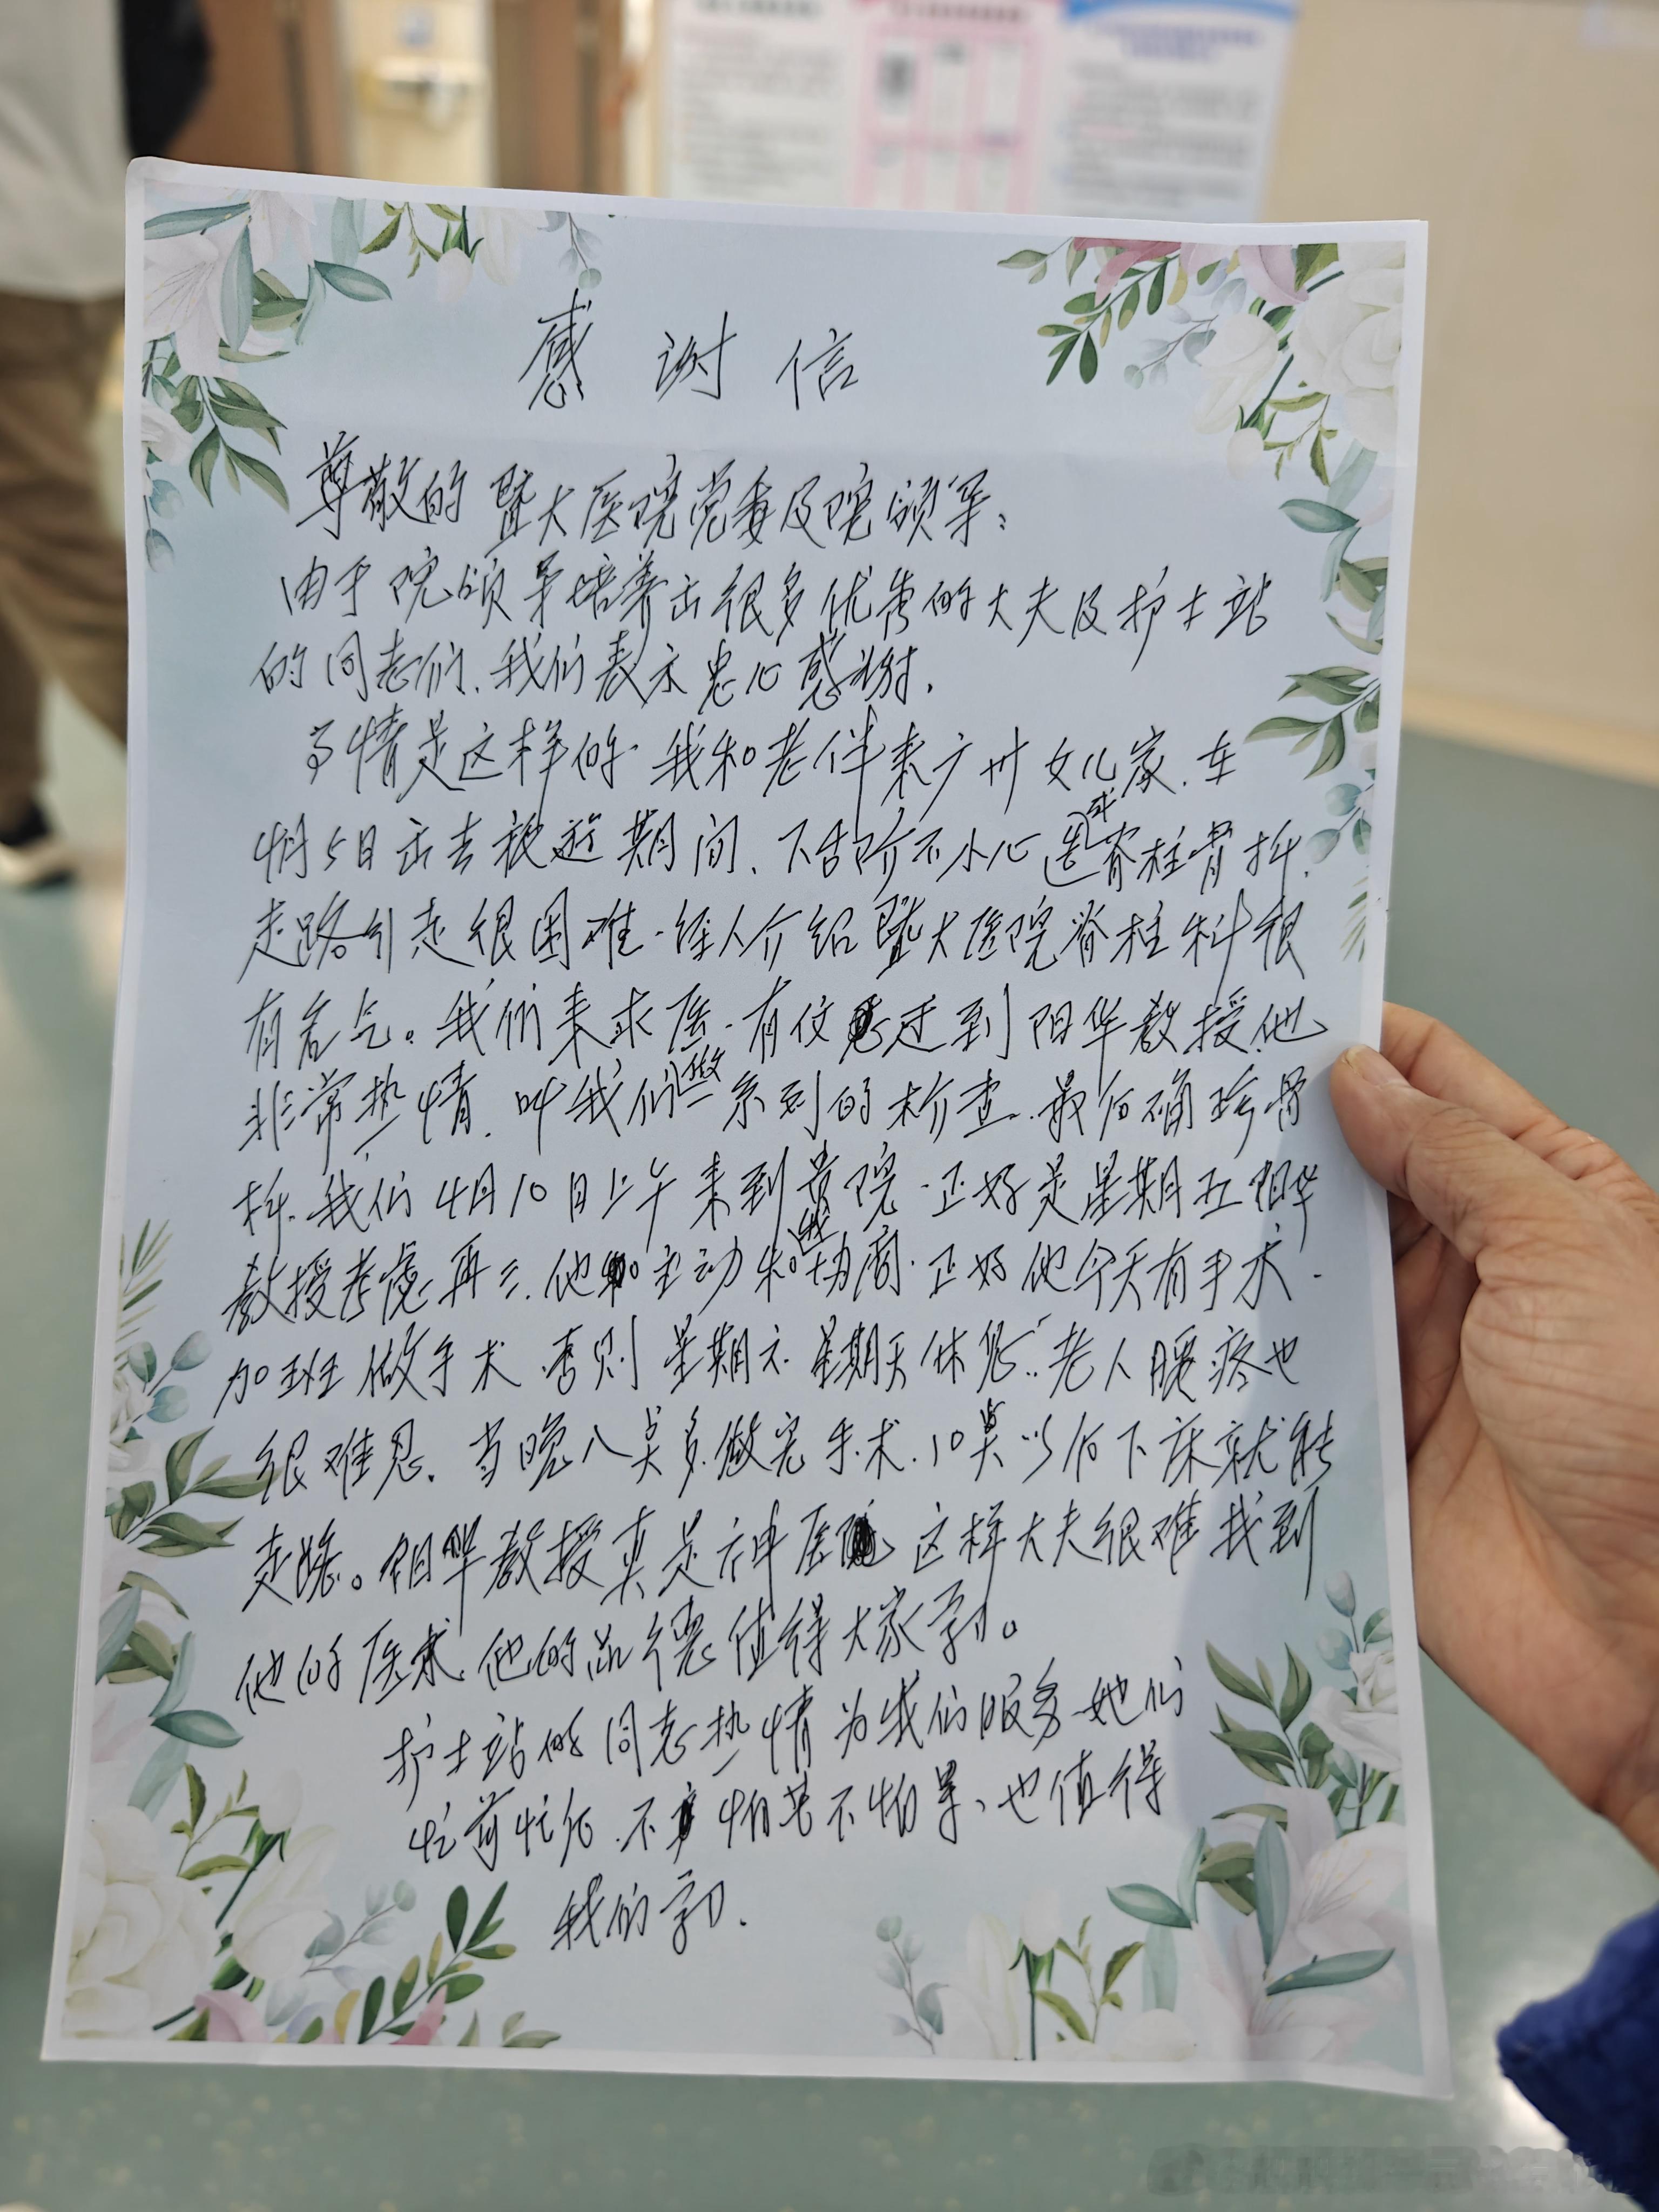 感谢信
尊敬的暨大医院党委及院领导：
由于院领导培养出很多优秀的大夫及护士站
的同志们、我们表示忠心感谢.
事情是这样的.我和老伴来广州女儿家.在
4月5日出去旅游期间、下台阶不小心造成脊柱骨折.
走路引起很困难.经人介绍暨大医院脊柱科很
有名气。我们来求医.有仪遇到阳华教授.他
非常热情.叫我们做一系列的检查.最后确珍骨
折.我们4月10日上午来到贵院.正好是星期五阳华
教授考虑再三.他主动和我协商.正好他今天有手术.
加班做手术.否则星期六.星期天休息..老人腰疼也
很难忍.当晚八点多做完手术.10点以后下床就能
走路。阳华教授真是神医 这样大夫很难找到
他的医术.他的品德值得大家学习。
护士站的同志热情为我们服务.她们
忙前忙后.不怕苦不怕累、也值得
我们学习.